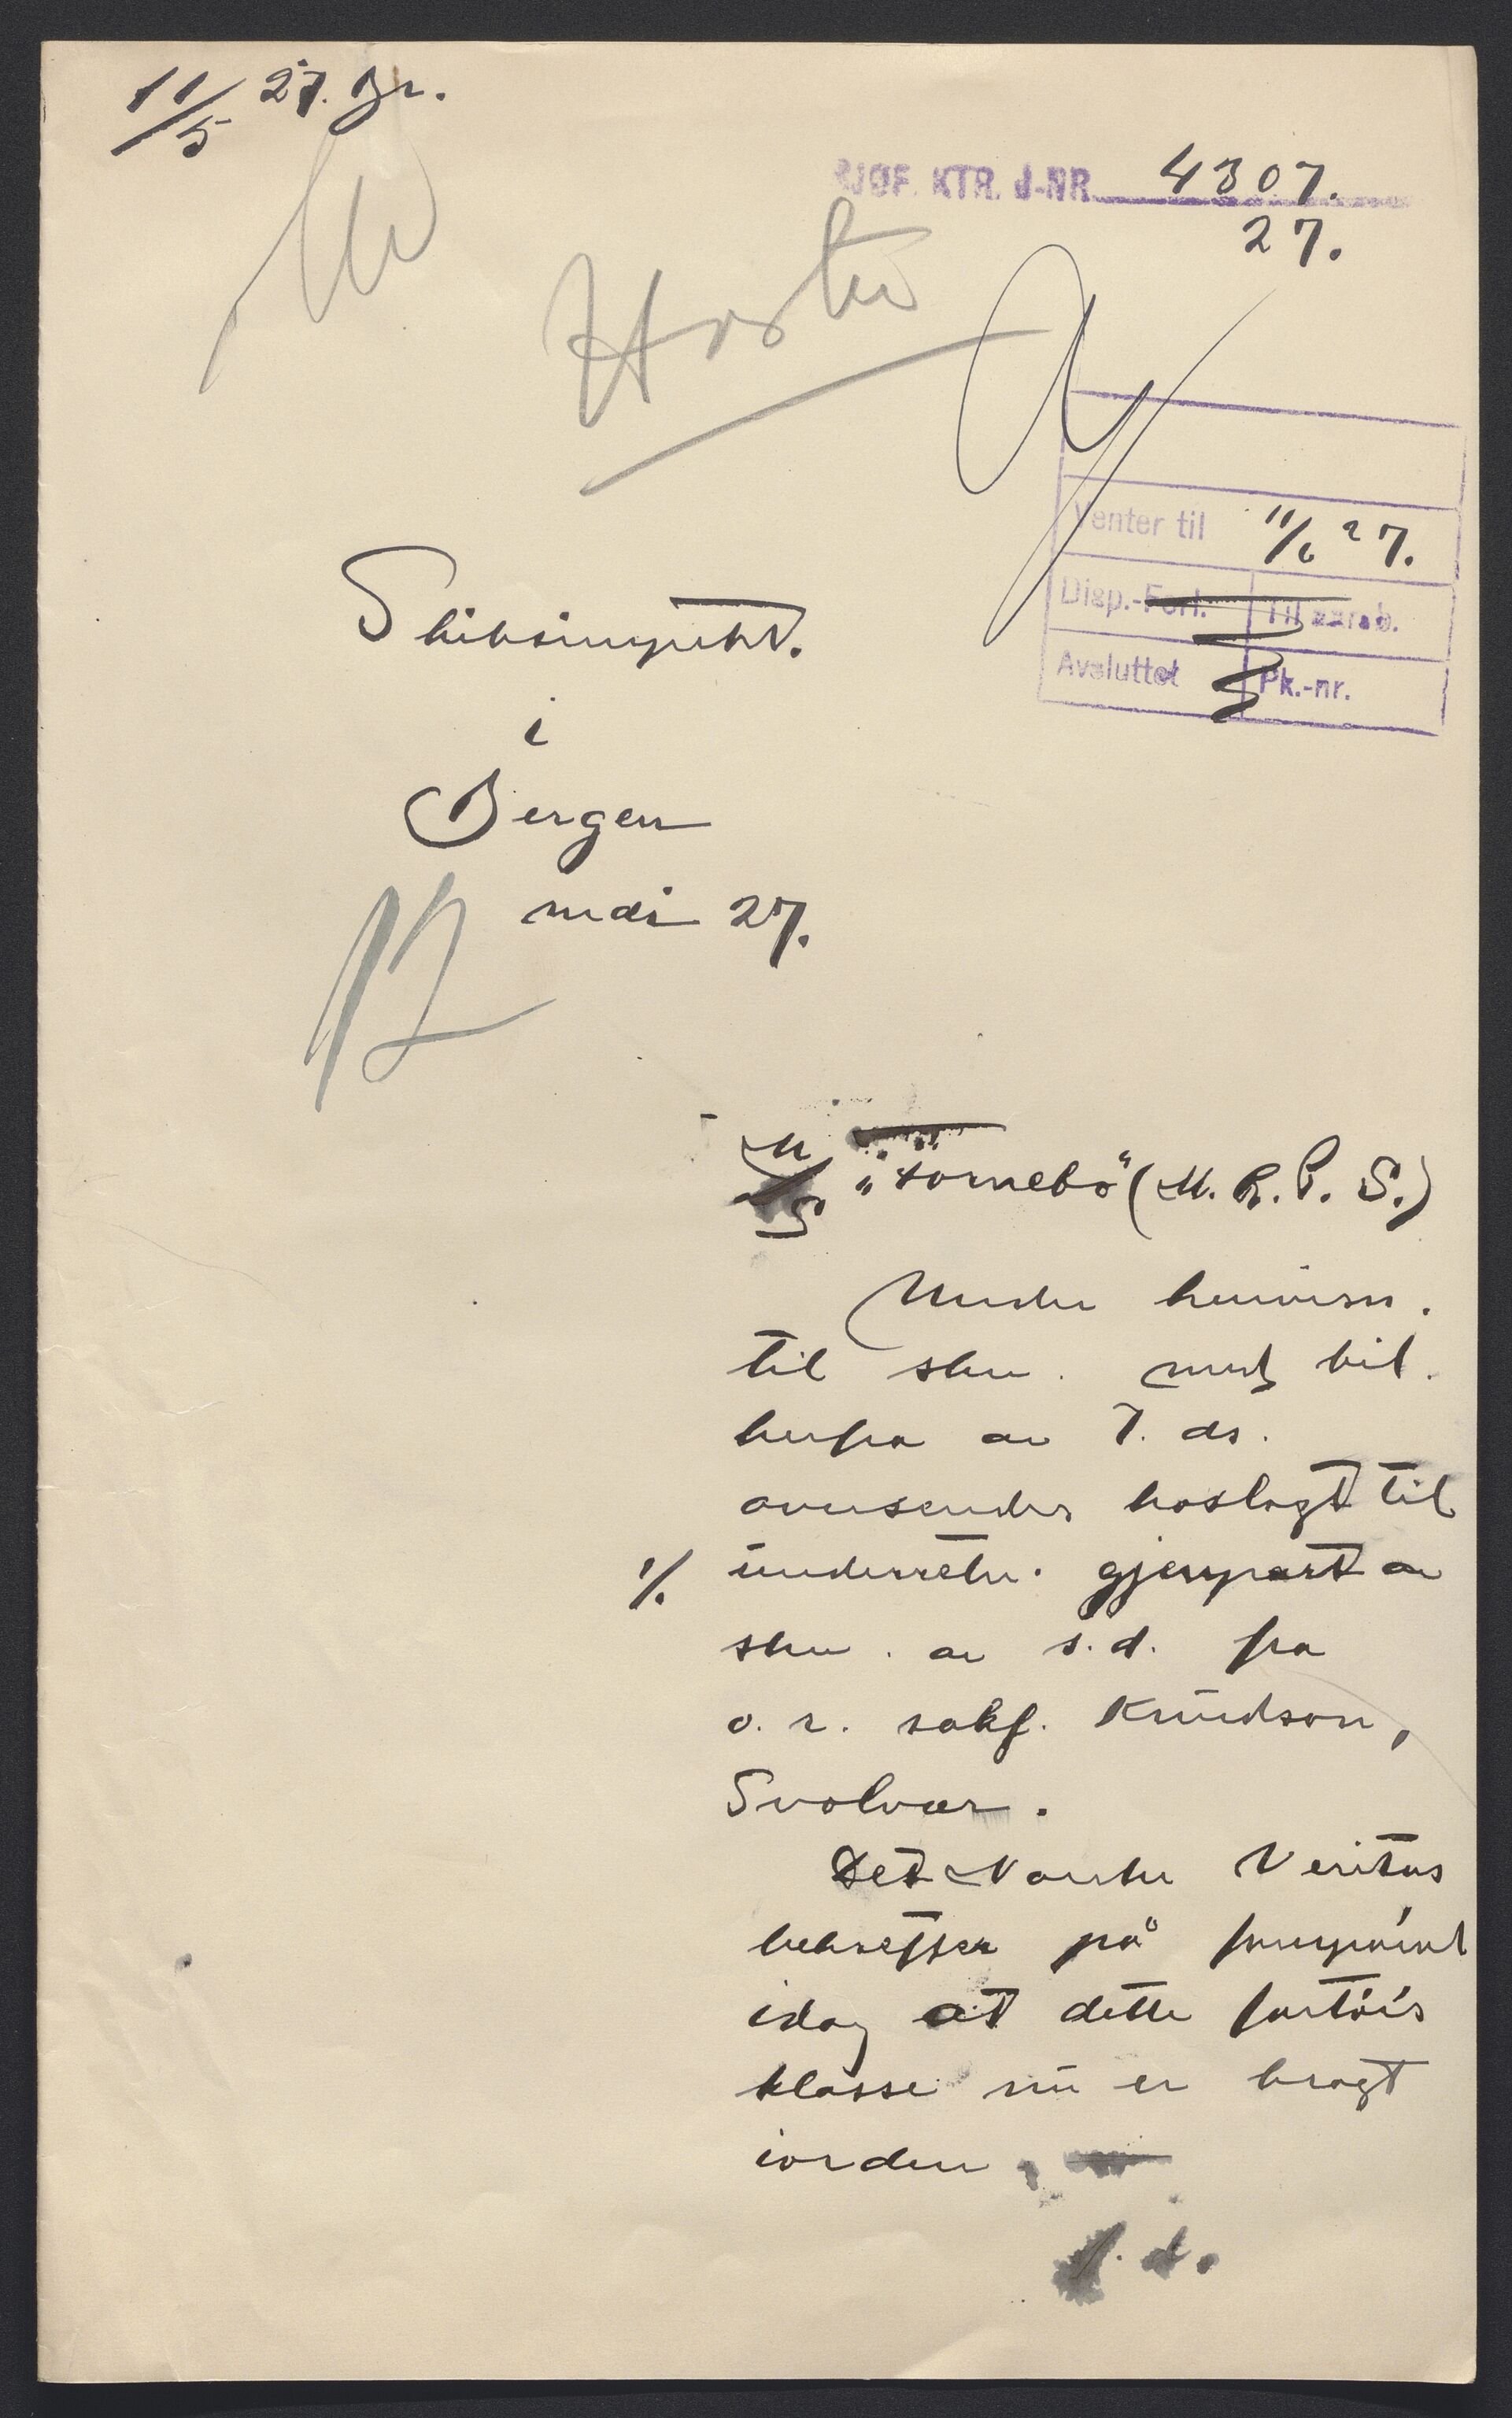 11/5 27. Br.
SJØF. KTR. J-NR. 4307.
27.
Haster
Venter til 11/6 27.
Disp.-Forf. Til æarsb.
Avsluttet Pk.-nr.
Skibsinspekt.
i
Bergen
12 mai 27.
M/S. "Tornebo" (M. R. P. S.)
Under henvisn.
til skr. med bil.
herfra av 7. ds.
oversendes hoslagt til
1/. underretn. gjenpart av
skr. av s.d. fra
o. r. sakf. Knudson,
Svolvær.
Det Norske Veritas
bekrefter på forespørsel
idag at dette fartøis
klasse nu er bragt
iorden.
f. d.